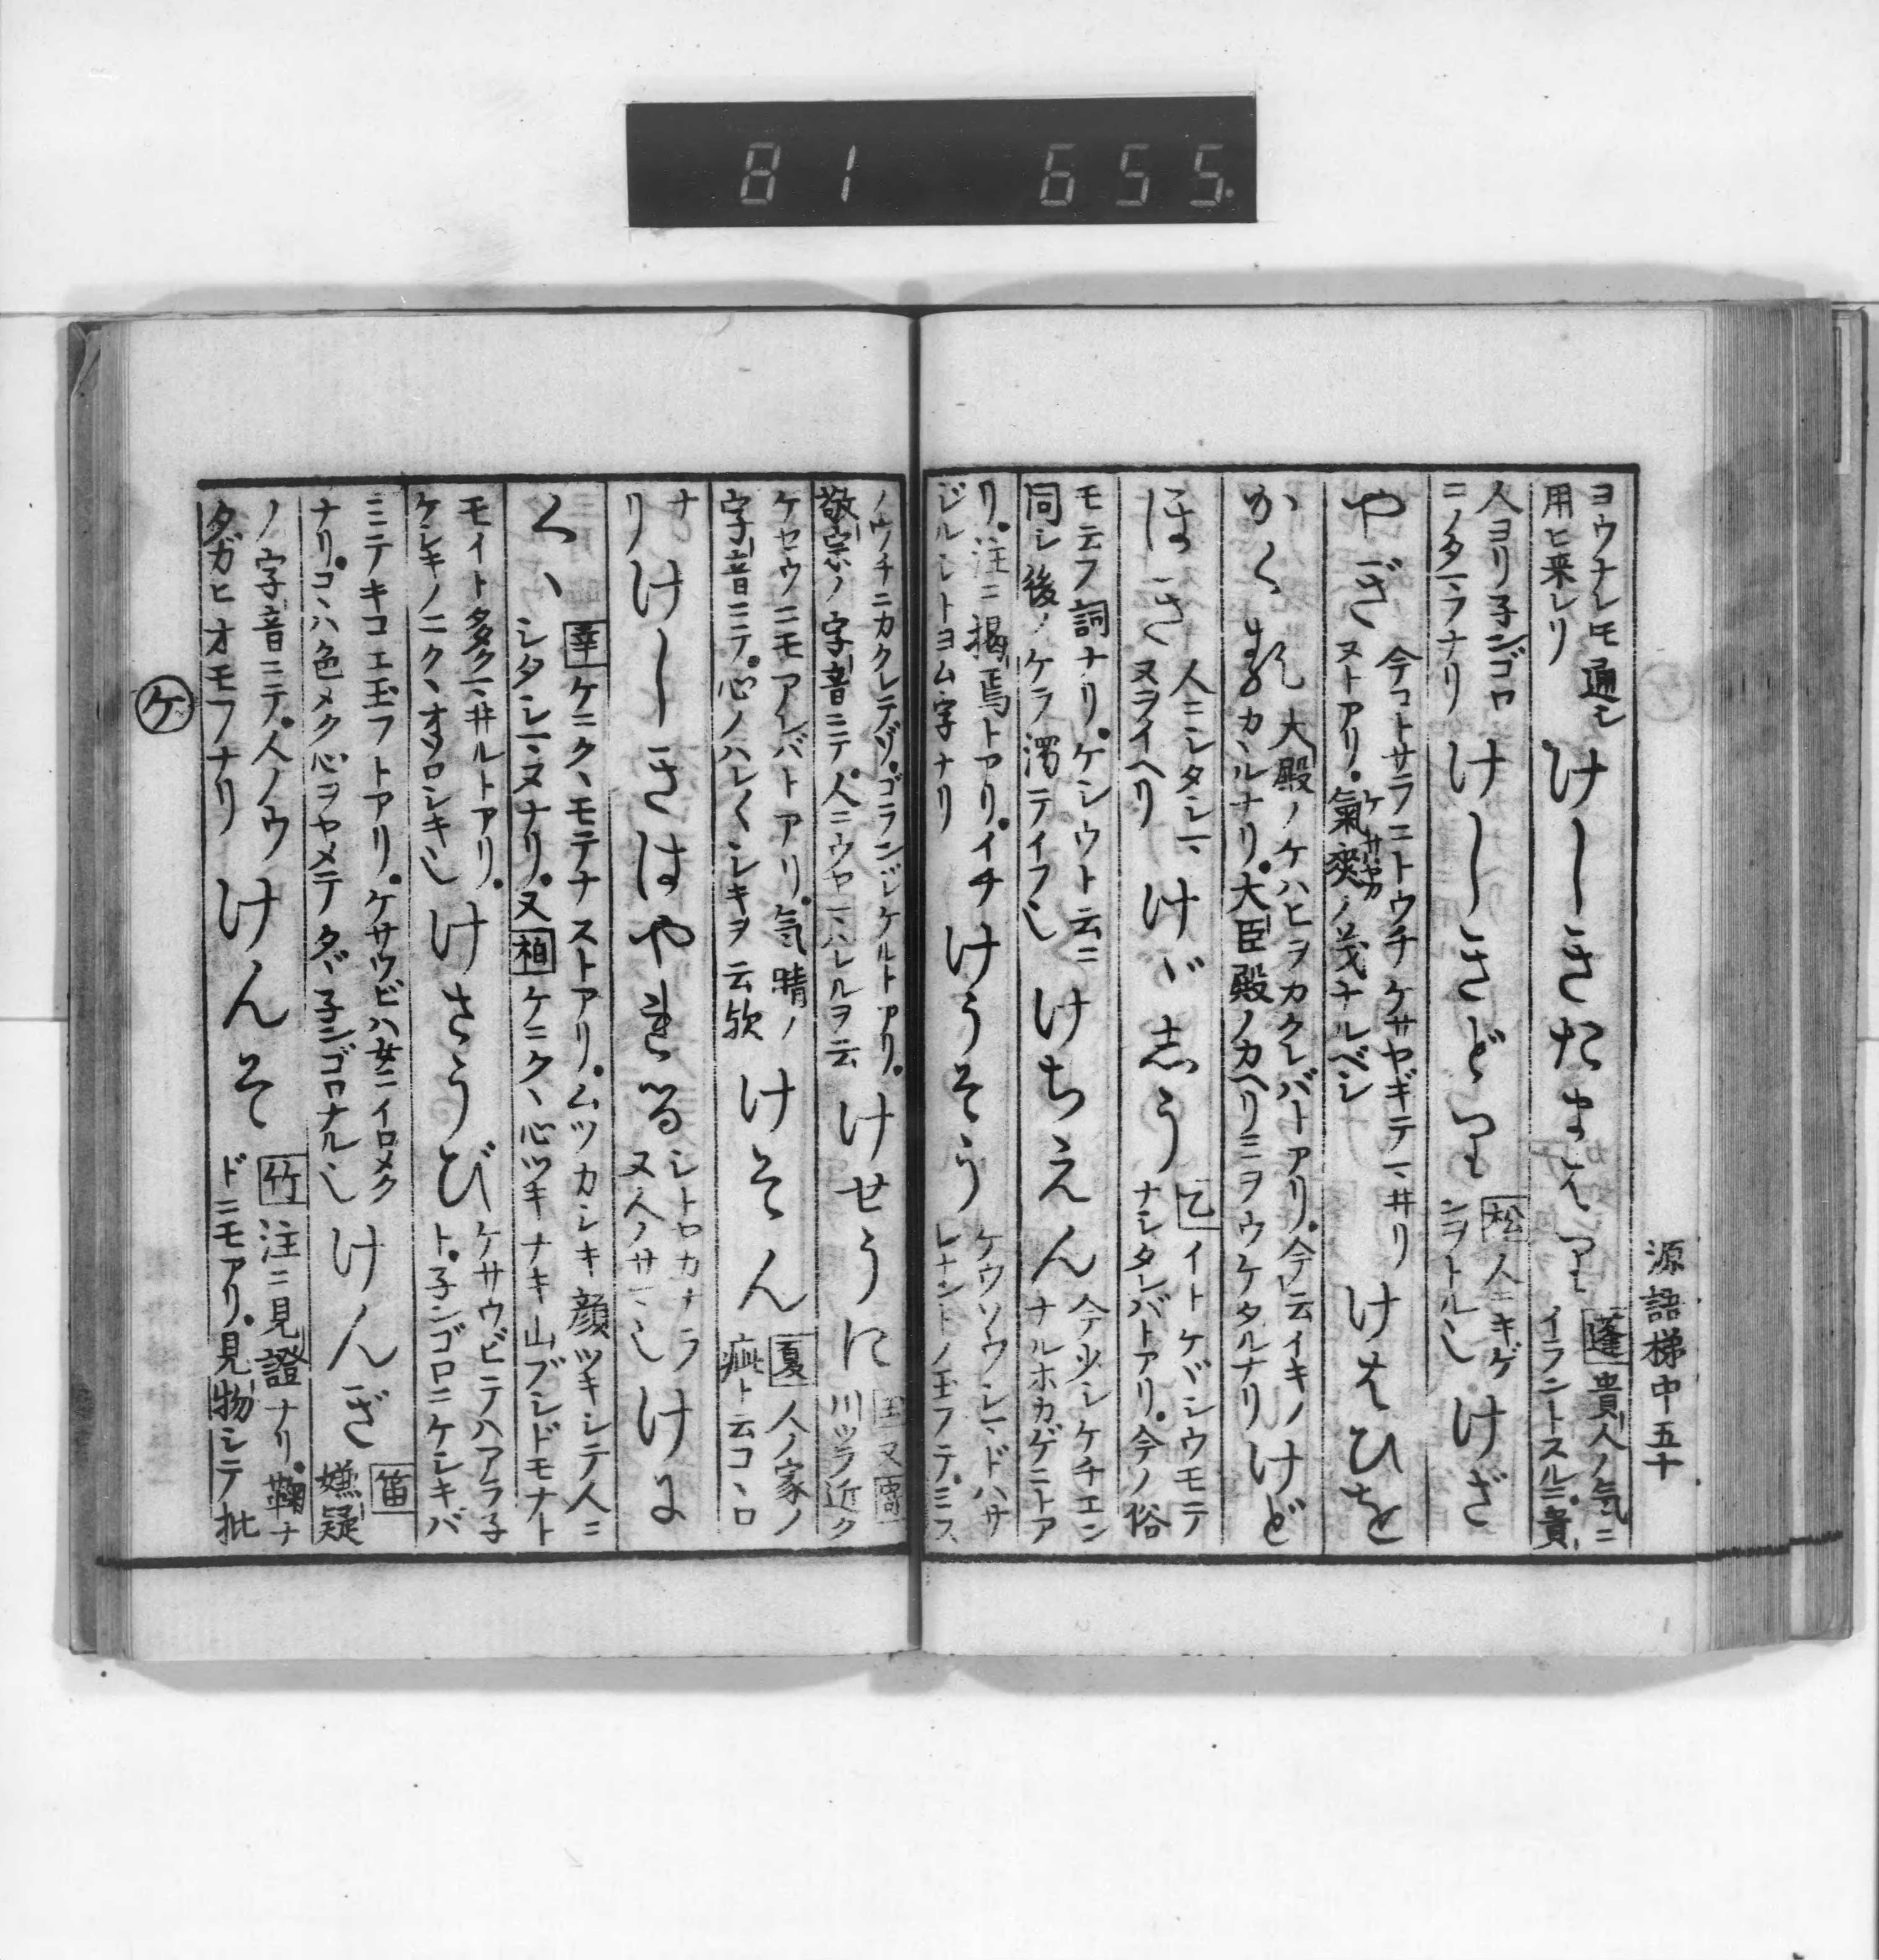 81 655
源語梯中五十
ヨウナレモ通シ
用ヒ来レリ
けしきたまはり
蓬 貴人ノ気ニ
イラントスル言貴
人ヨリ子ンゴロ
ニノタマフナリ
けしきどり
松 人ノキゲ
ンヲトル也
けざ
やぎ
今コトサラニトウチケサヤギテマ井リ
ヌトアリ。氣爽ノ義ナルベシ
けはひを
かくれ
大殿ノケハヒヲカクレバトアリ。今云イキノ
カヽルナリ。大臣殿ノカヘリミヲウケタルナリ
けど
ほき
人ニシタシマ
ヌライヘリ
けゞしう
乙 イトケヾシウモテ
ナシタレバトアリ。今ノ俗
モテフ詞ナリ。ケシウト云ニ
同シ後ノケラ濁テイフ也
けちえん
今少シケチエン
ナルホカゲニトア
リ。注ニ掲焉トアリ。イチ
ジルシトヨム字ナリ
けうそう
ケウソウシマドハサ
レナントノ玉フテ。ミス
ノウチニカクレテゾ。ゴランジケルトアリ。
敬崇ノ字音ニテ。人ニウヤマハレルヲ云
けせうに
玉 又 寄
川ツラ近ク
ケセウニモアレバトアリ。気晴ノ
字音ニテ。心ノハレ〱シキヲ云欤
けそん
夏 人ノ家ノ
ト云コヽロ
ナ
リ
けしきはやまる
シトロカナラ
又人ノサマ也
けに
くゝ
ケニクヽモテナストアリ。ムツカシキ顔ツキシテ人ニ
シタシマヌナリ。又柏ケニクヽ心ツキナキ山ブシドモナト
モイト多クマ井ルトアリ。
ケシキノニクヽオソロシキ也
けさうび
ケサウビテハアラ子
ト。子ンゴロニケシキバ
ミテキコエ玉フトアリ。ケサウビハ女ニイロメク
ナリ。コヽハ色メク心ヲヤメテタヾ子ンゴロナル也
けんぎ
笛
嫌疑
ノ字音ニテ。人ノウ
タガヒオモフナリ
けんそ
竹 注ニ見證ナリ。鞠ナ
ドニモアリ。見物シテ批
ケ